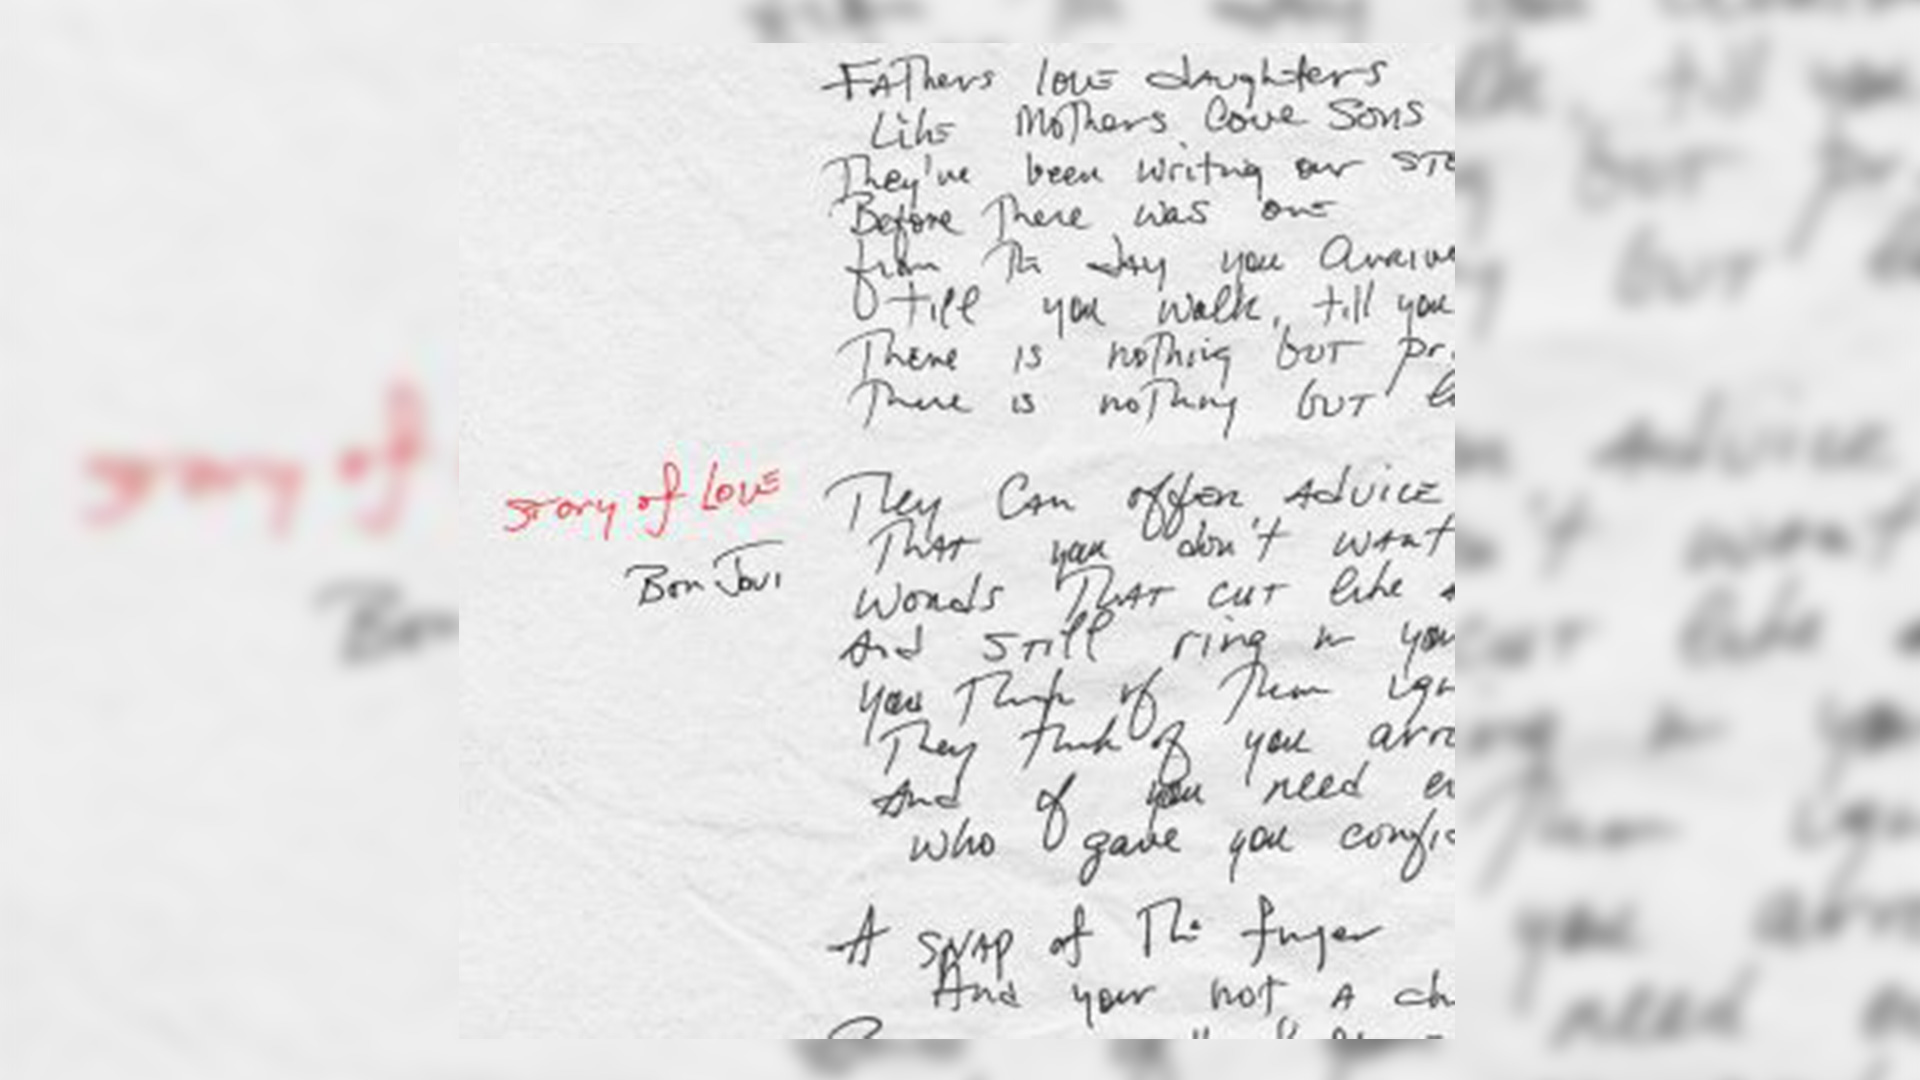 Fathers love daughters
Like Mothers Love Sons
They've been writing our STO
Before There was one
from The day you Arrive
till you walk, till you
There is nothing but pr
There is nothing but
Story of Love
Bon Jovi
They Can offer Advice
That you don't want
Words That cut like a
And still ring in you
You Think of Them ign
They think of you arro
And if you need
who gave you confid
A snap of The finger
And your not a ch